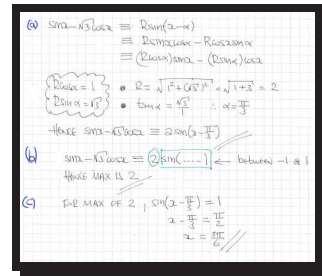 (a) sinx - √3 cosx ≡ Rsin(x - α)
≡ Rsinxcosα - Rcosxsinα
≡ (Rcosα)sinx - (Rsinα)cosx
Rcosα = 1
Rsinα = √3
• R = √(1² + (√3)²) = √(1+3) = 2
• tanα = √3/1 ∴ α = π/3
HENCE sinx - √3 cosx ≡ 2sin(x - π/3)
(b) sinx - √3 cosx ≡ 2 sin(.....) ← between -1 & 1
HENCE MAX IS 2
(c) FOR MAX OF 2, sin(x - π/3) = 1
x - π/3 = π/2
x = 5π/6